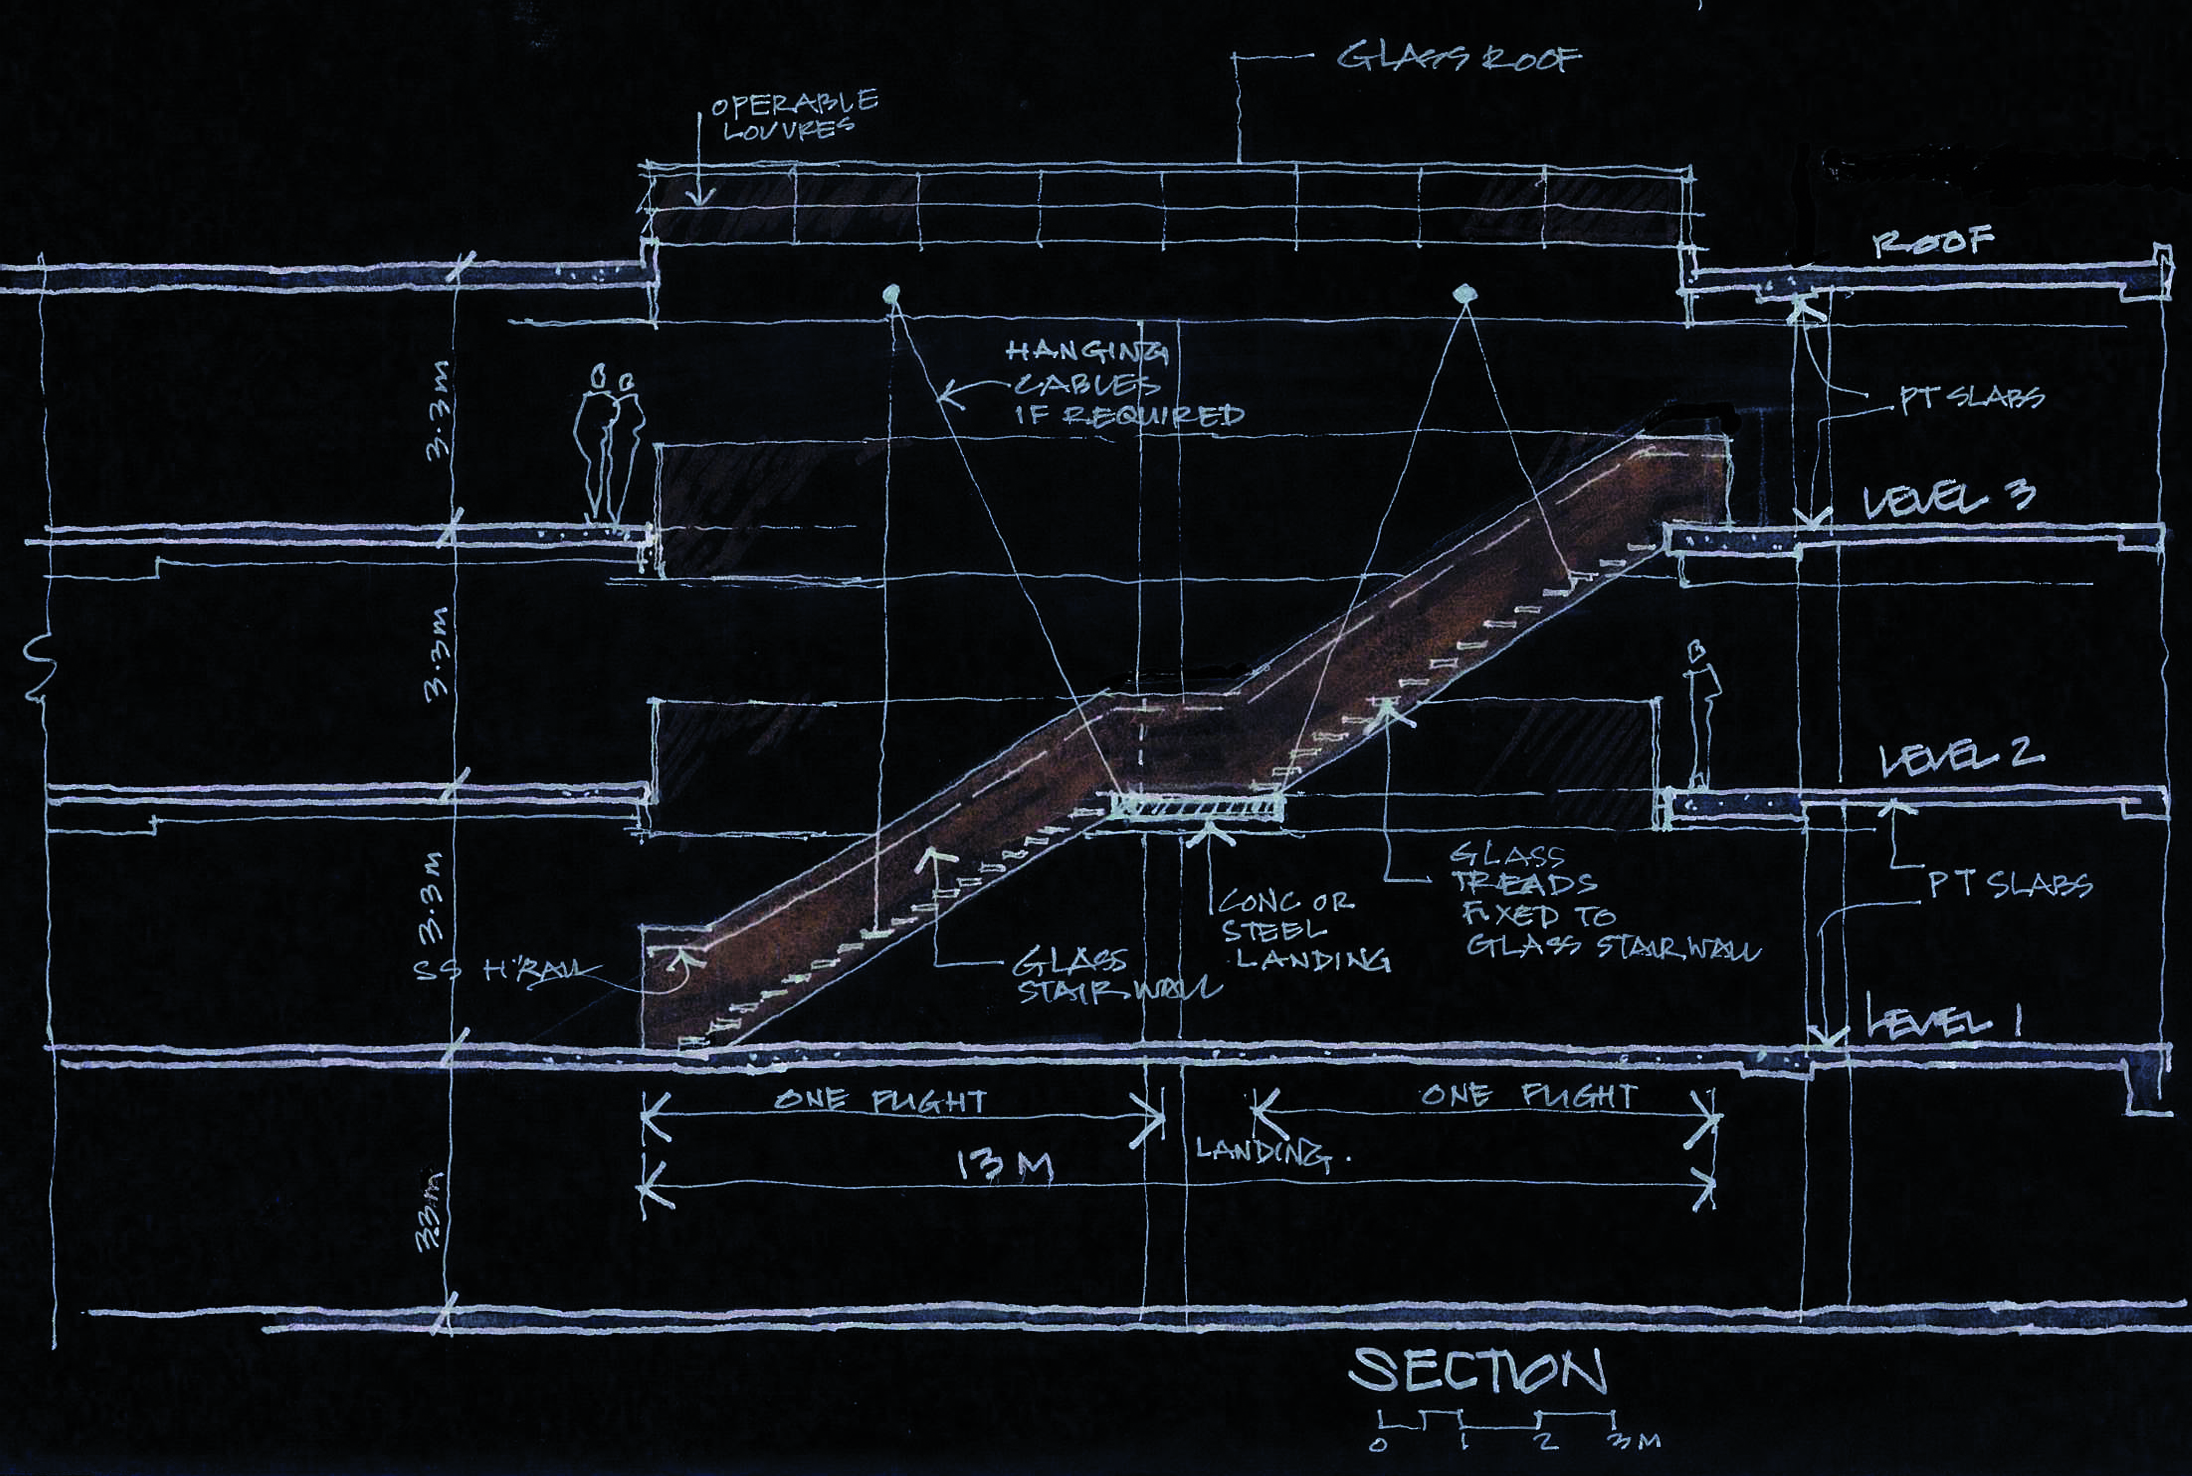 GLASS ROOF
OPERABLE
LOUVRES
ROOF
HANGING
CABLES
IF REQUIRED
3.3m
PT SLABS
LEVEL 3
3.3m
LEVEL 2
GLASS
TREADS
FIXED TO
GLASS STAIR WALL
PT SLABS
3.3m
CONC OR
STEEL
LANDING
SS H'RAIL
GLASS
STAIR WALL
LEVEL 1
ONE FLIGHT
ONE FLIGHT
LANDING.
13 M
3.3m
SECTION
0 1 2 3M